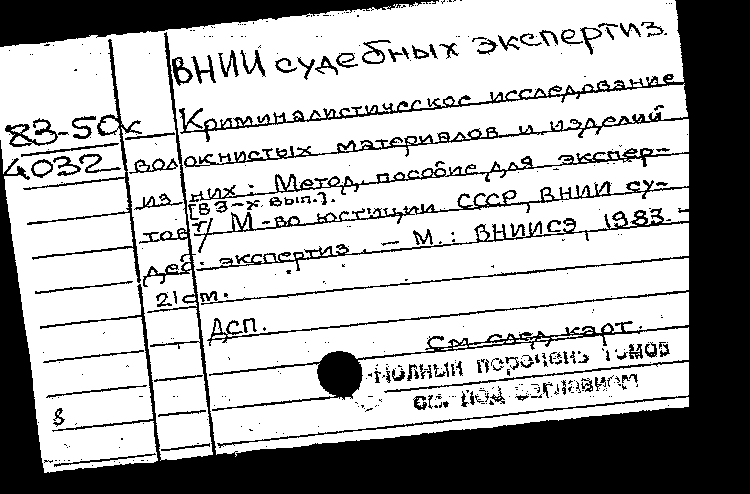 ВНИИ судебных экспертиз.
83-50к Криминалистическое исследование
4032 волокнистых материалов и изделий
из них: Метод. пособие для экспер-
[В 3-х вып.].
тов / М-во юстиции СССР, ВНИИ су-
деб. экспертиз. — М.: ВНИИСЭ, 1983. -
21 см.
ДСП.
См. след. карт.
Полный перечень томов
см. под заглавием
8